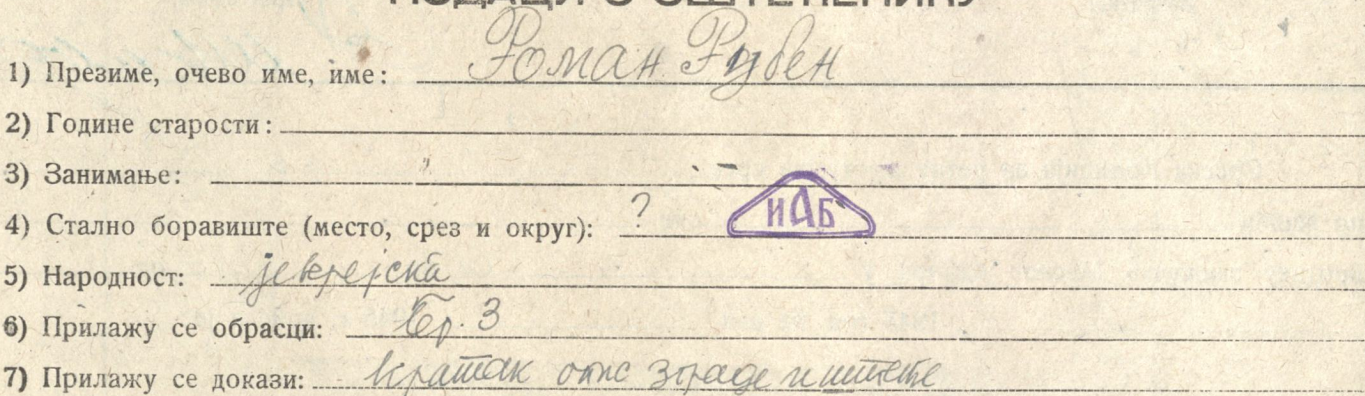 ПОДАЦИ О ОШТЕЋЕНИКУ
1) Презиме, очево име, име: Роман Рубен
2) Године старости:
3) Занимање:
4) Стално боравиште (место, срез и округ): ?
ИАБ
5) Народност: јеврејска
6) Прилажу се обрасци: Бр. 3
7) Прилажу се докази: кратак опис зграде и штете